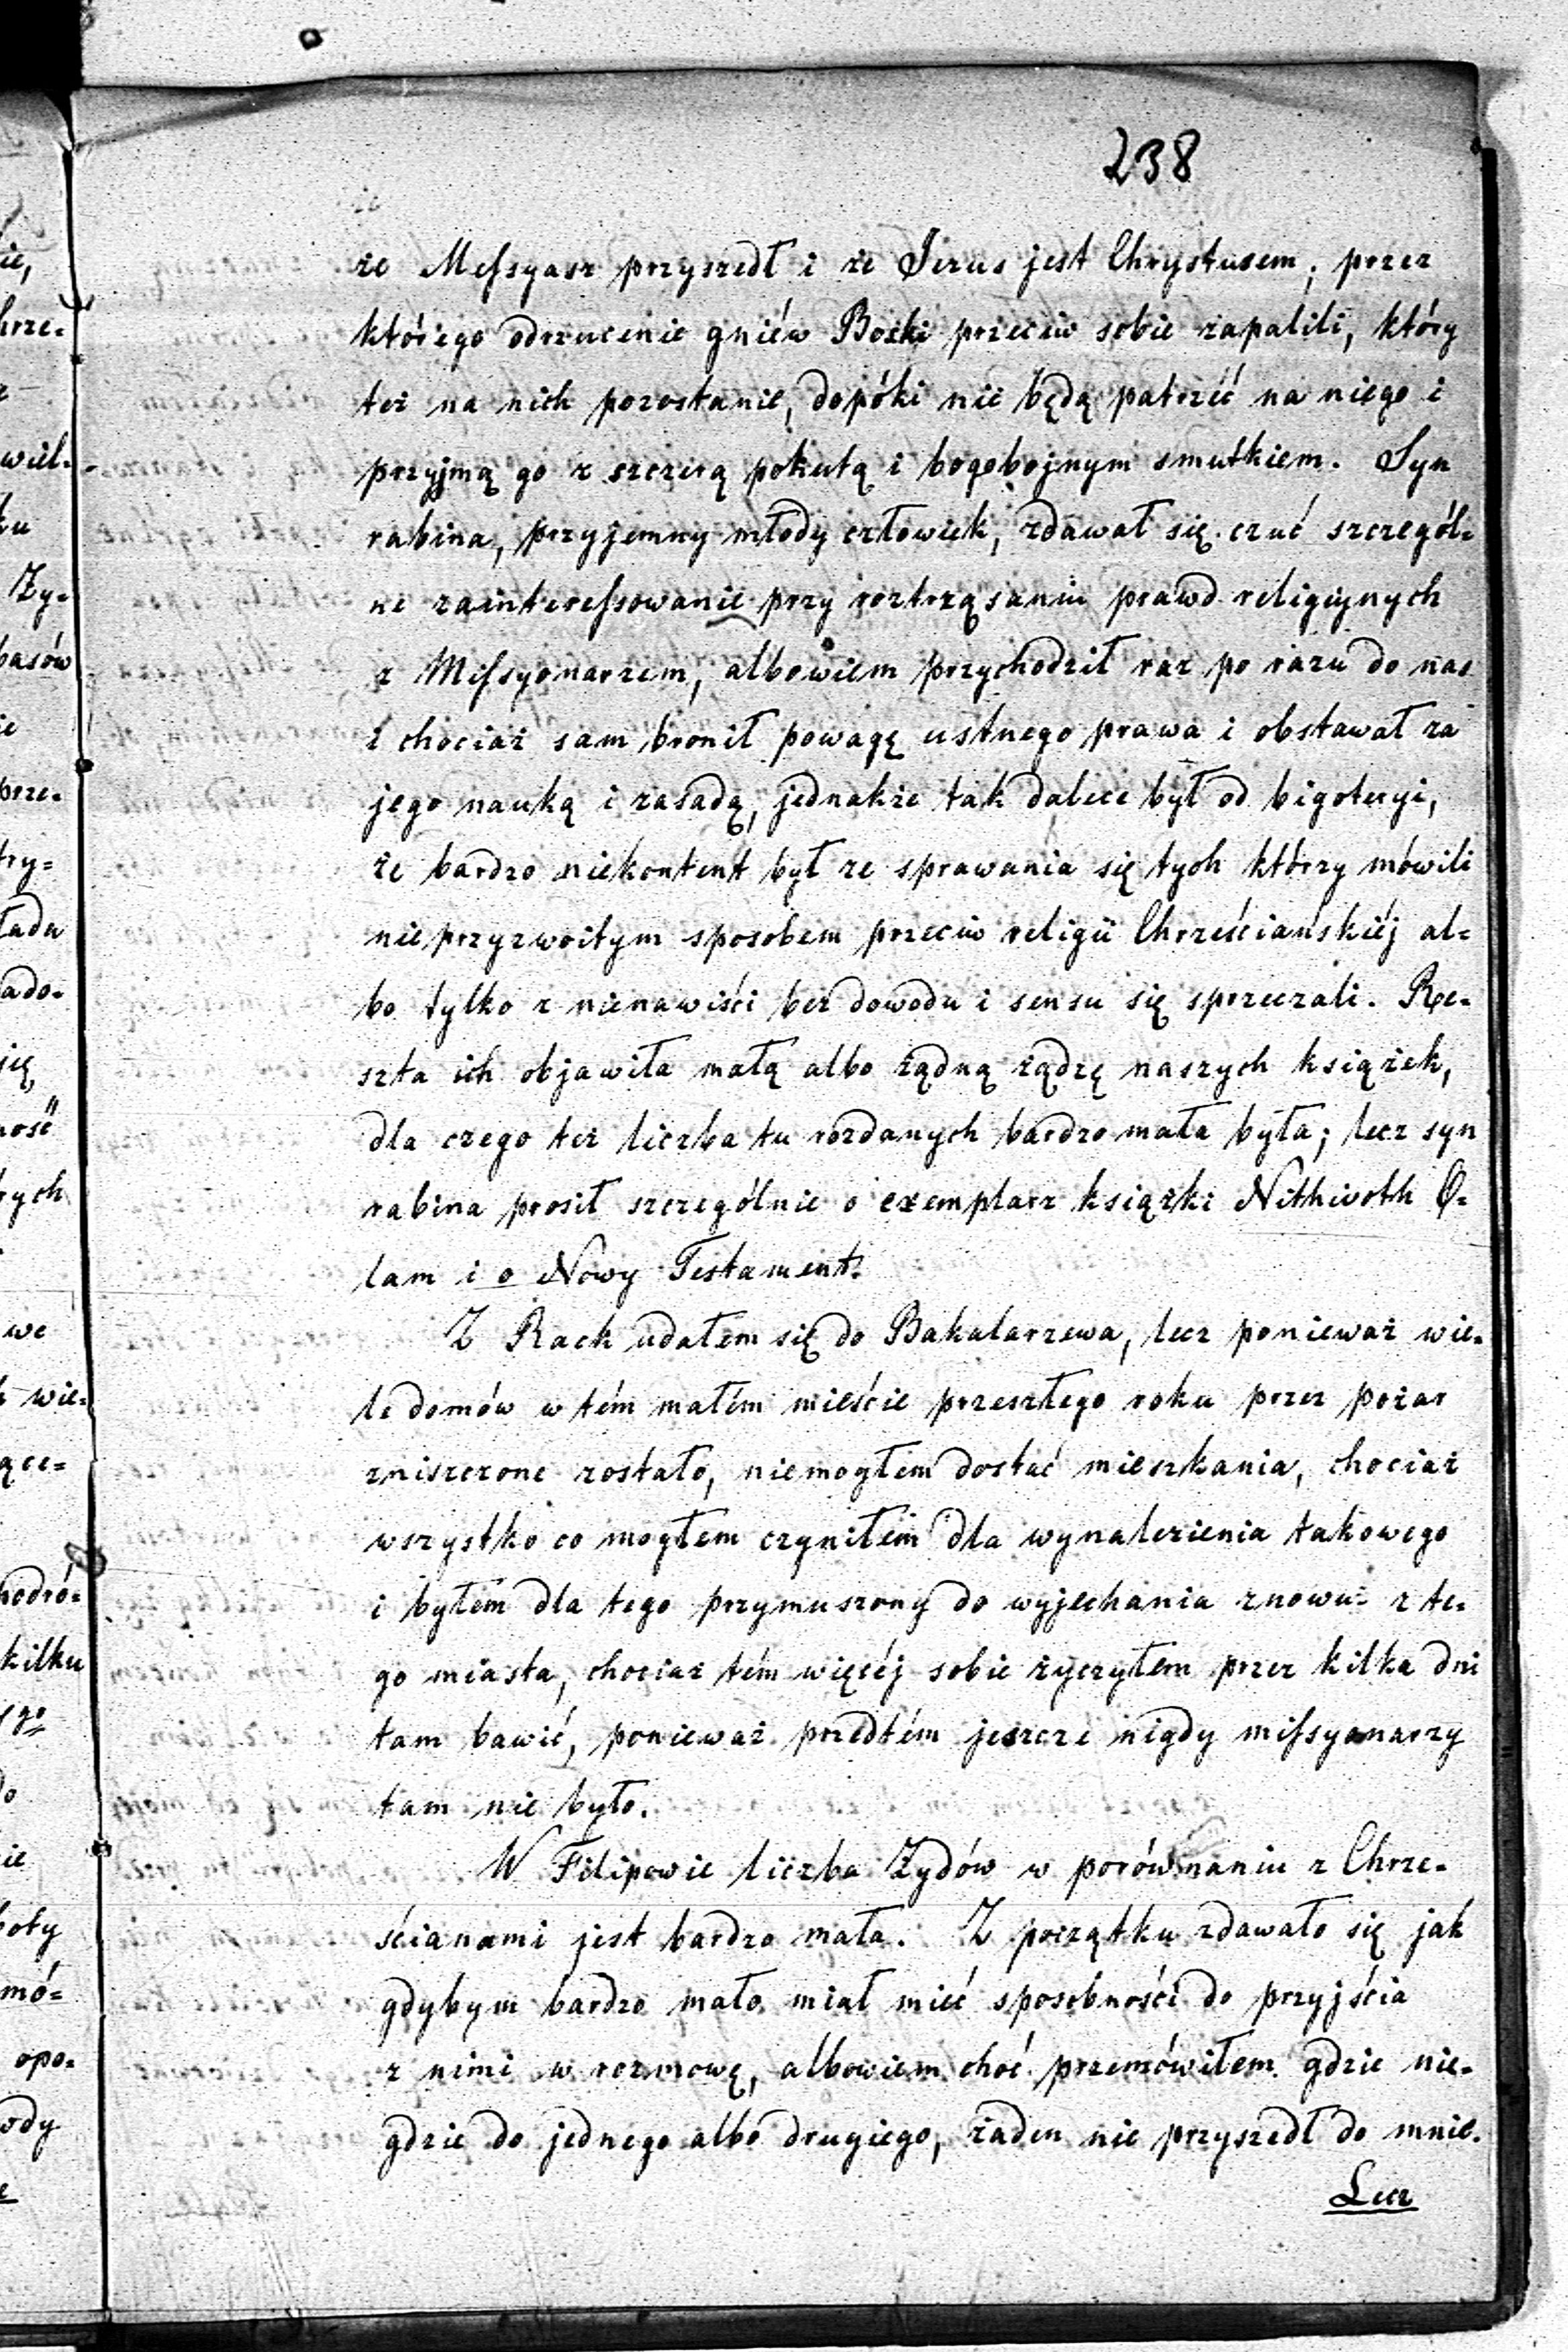 238
że Messyasz przyszedł i że Jezus jest Chrystusem; przez
którego odrzucenie gniéw Bozki przeciw sobie zapalili, który
też na nich pozostanie, dopóki nie będą patrzéć na niego i
przyjmą go z szczerą pokutą i bogobojnym smutkiem. Syn
rabina, przyjemny młody człowiek, zdawał się czuć szczegól=
ne zainteressowanie przy roztrząsaniu prawd religiynych
z Missyonarzem, albowiem przychodził raz po razu do nas
i chociaż sam bronił powagę ustnego prawa i obstawał za
jego nauką i zasadą, jednakże tak dalece był od bigoteryi,
że bardzo niekontent był ze sprawania się tych którzy mówili
nieprzyzwoitym sposobem przeciw religii Chrześciańskiéj al=
bo tylko z nienawiści bez dowodu i sensu się sprzeczali. Re=
szta ich objawiła małą albo żądną żądzę naszych książek,
dla czego też liczba tu rozdanych bardzo mała była; lecz syn
rabina prosił szczególnie o exemplarz książki Nithivoth O=
lam i o Nowy Testament.
Z Rack udałem się do Bakalarzewa, lecz ponieważ wie=
le domów w tém małém mieście przeszłego roku przez pożar
zniszczone zostało, niemogłem dostać mieszkania, chociaż
wszystko co mogłem czyniłem dla wynalezienia takowego
i byłem dla tego przymuszony do wyjechania znowu z te=
go miasta, chociaż tém więcéj sobie życzyłem przez kilka dni
tam bawić, ponieważ przedtém jeszcze nigdy missyonarzy
tam nie było.
W Filipowie liczba Żydów w porównaniu z Chrze=
ścianami jest bardzo mała. Z początku zdawało się jak
gdybym bardzo mało miał mieć sposobności do przyjścia
z nimi w rozmowę, albowiem choć przemówiłem gdzie nie=
gdzie do jednego albo drugiego, żaden nie przyszedł do mnie.
Lecz